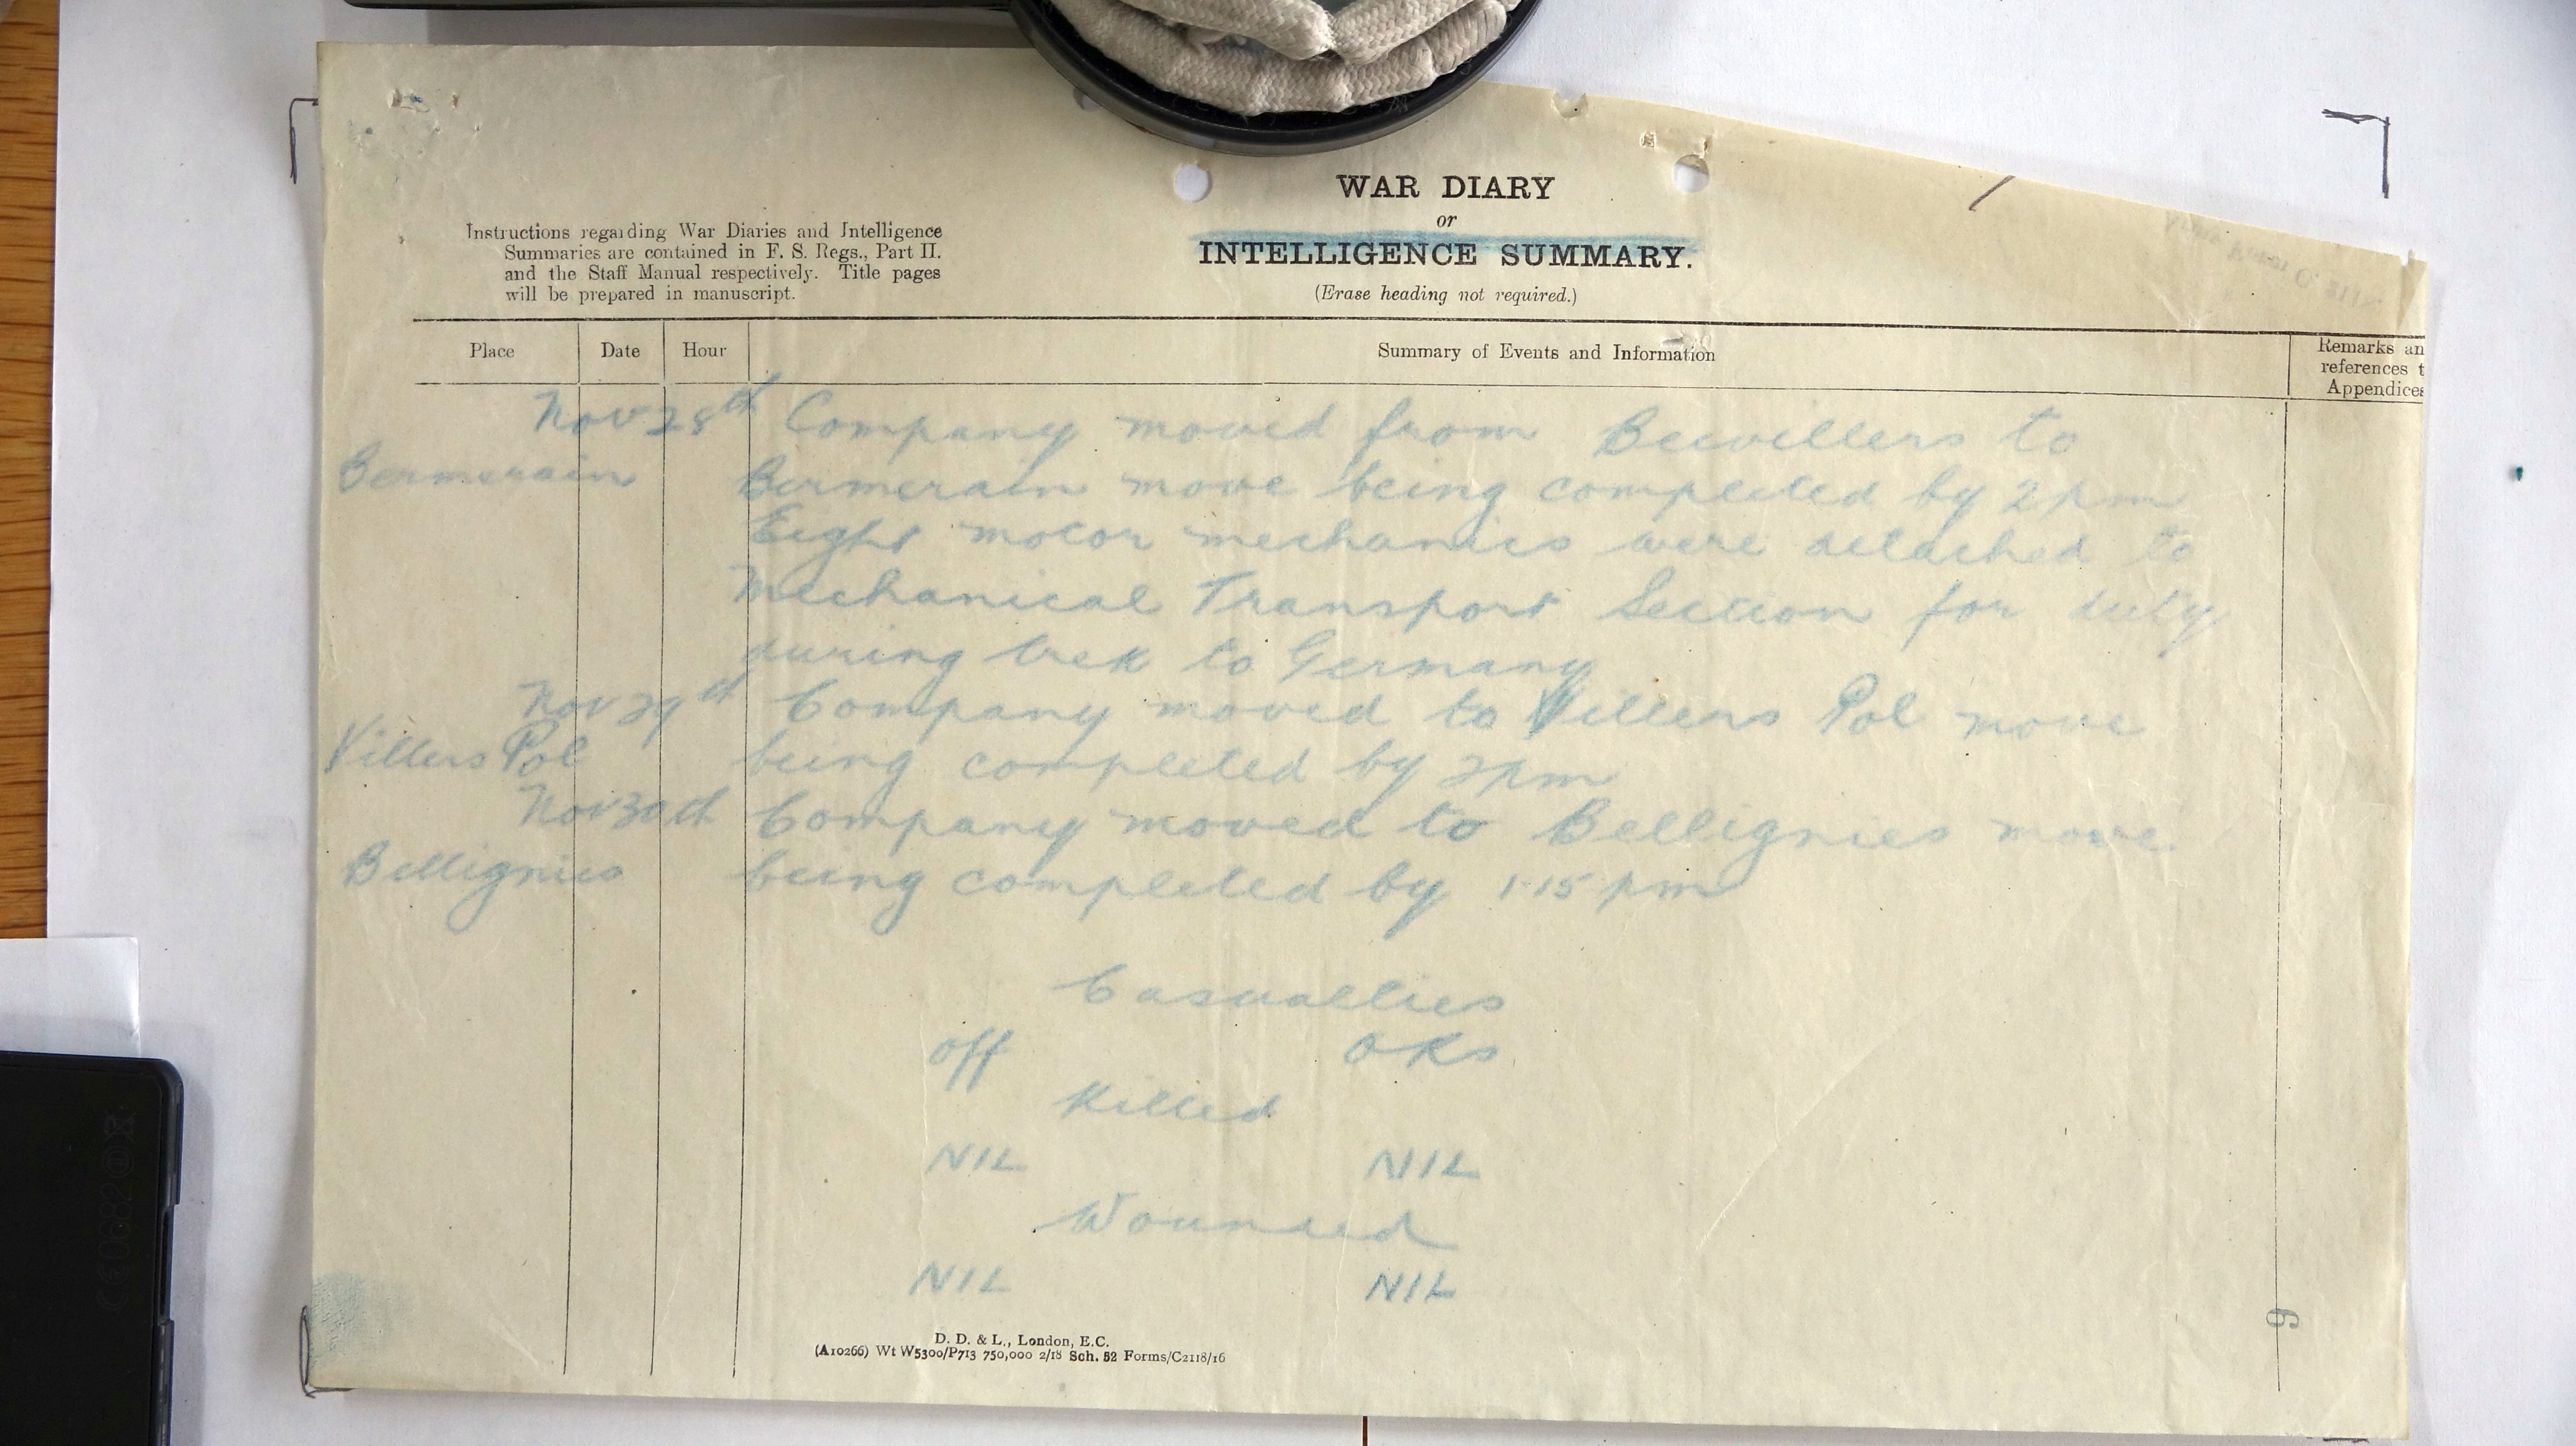 WAR DIARY
or
INTELLIGENCE SUMMARY.
(Erase heading not required.)
Instructions regarding War Diaries and Intelligence
Summaries are contained in F. S. Regs., Part II.
and the Staff Manual respectively. Title pages
will be prepared in manuscript.
Place Date Hour Summary of Events and Information Remarks an
references t
Appendices
Nov 28th Company moved from Beevillers to
Bermerain Bermerain move being completed by 2 pm
Eight motor mechanics were detached to
Mechanical Transport Section for duty
during trek to Germany
Nov 29th Company moved to Villers Pol move
Villers Pol being completed by 2 pm
Nov 30th Company moved to Bellignies move
Bellignies being completed by 1.15 pm
Casualties
Off ORs
Killed
NIL NIL
Wounded
NIL NIL
D. D. & L., London, E.C.
(A10266) Wt W5300/P713 750,000 2/18 Sch. 52 Forms/C2118/16